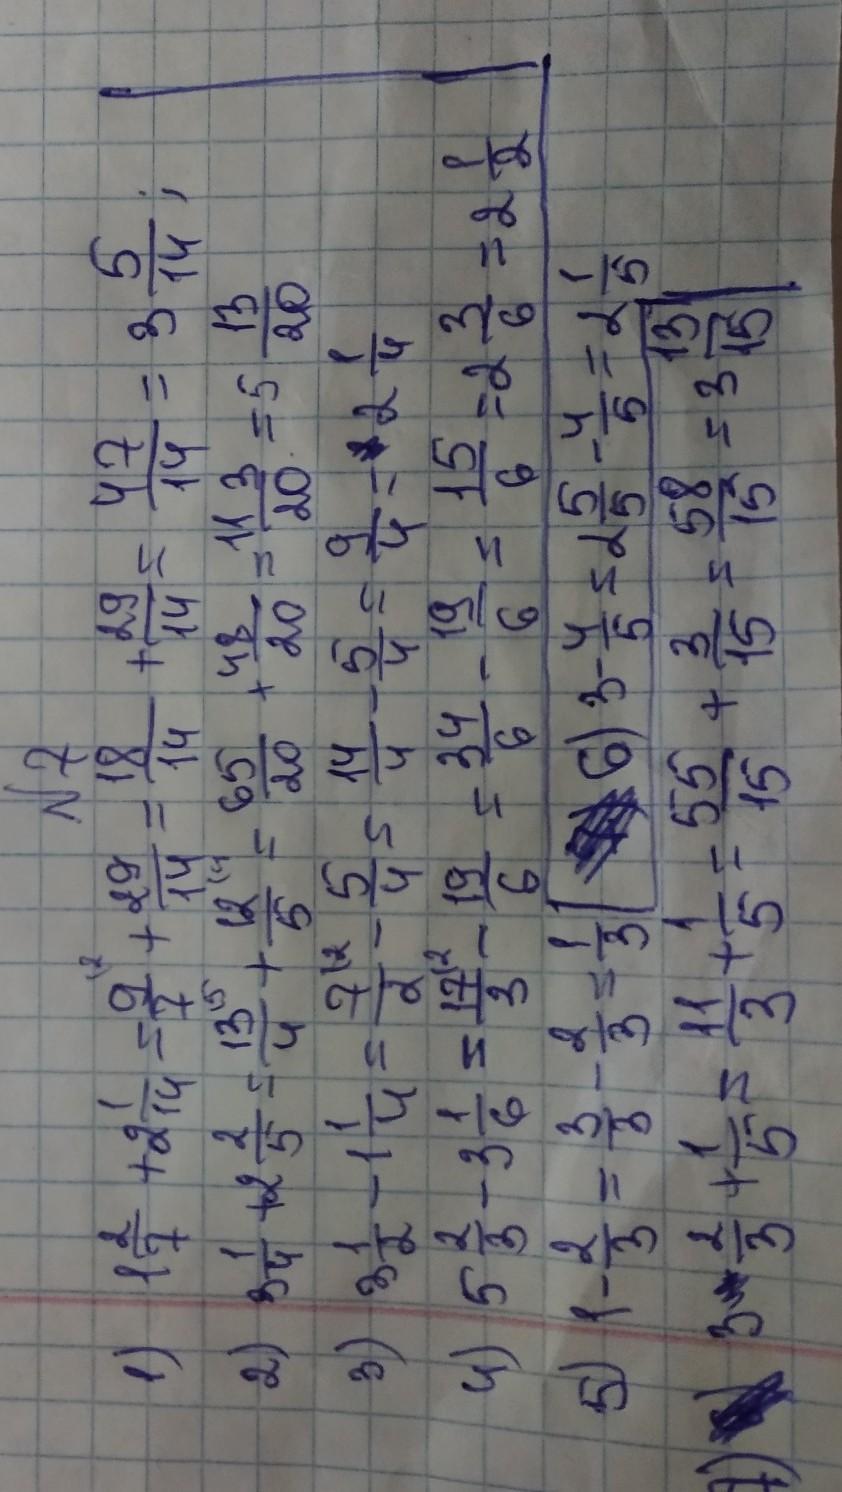 N 7
1) 1 2/7 + 2 1/14 = 9/7 ⁽² + 29/14 = 18/14 + 29/14 = 47/14 = 3 5/14;
2) 3 1/4 + 2 2/5 = 13/4 ⁽⁵ + 12/5 ⁽⁴ = 65/20 + 48/20 = 113/20 = 5 13/20
3) 3 1/2 - 1 1/4 = 7/2 ⁽² - 5/4 = 14/4 - 5/4 = 9/4 = 2 1/4
4) 5 2/3 - 3 1/6 = 17/3 ⁽² - 19/6 = 34/6 - 19/6 = 15/6 = 2 3/6 = 2 1/2
5) 1 - 2/3 = 3/3 - 2/3 = 1/3
6) 3 - 4/5 = 2 5/5 - 4/5 = 2 1/5
7) 3 2/3 + 1/5 = 11/3 + 1/5 = 55/15 + 3/15 = 58/15 = 3 13/15